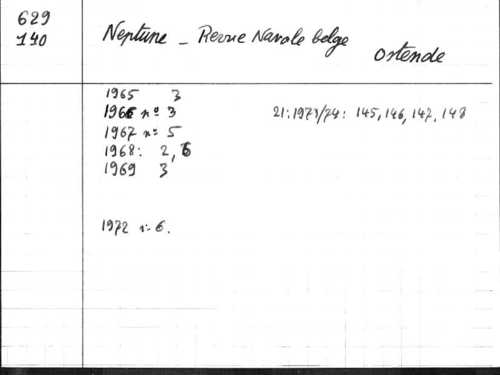 629
140
Neptune - Revue Navale belge
Ostende
1965 3
1966 n° 3
21: 1973/74: 145, 146, 147, 148
1967 n° 5
1968: 2, 6
1969 3
1972 n° 6.